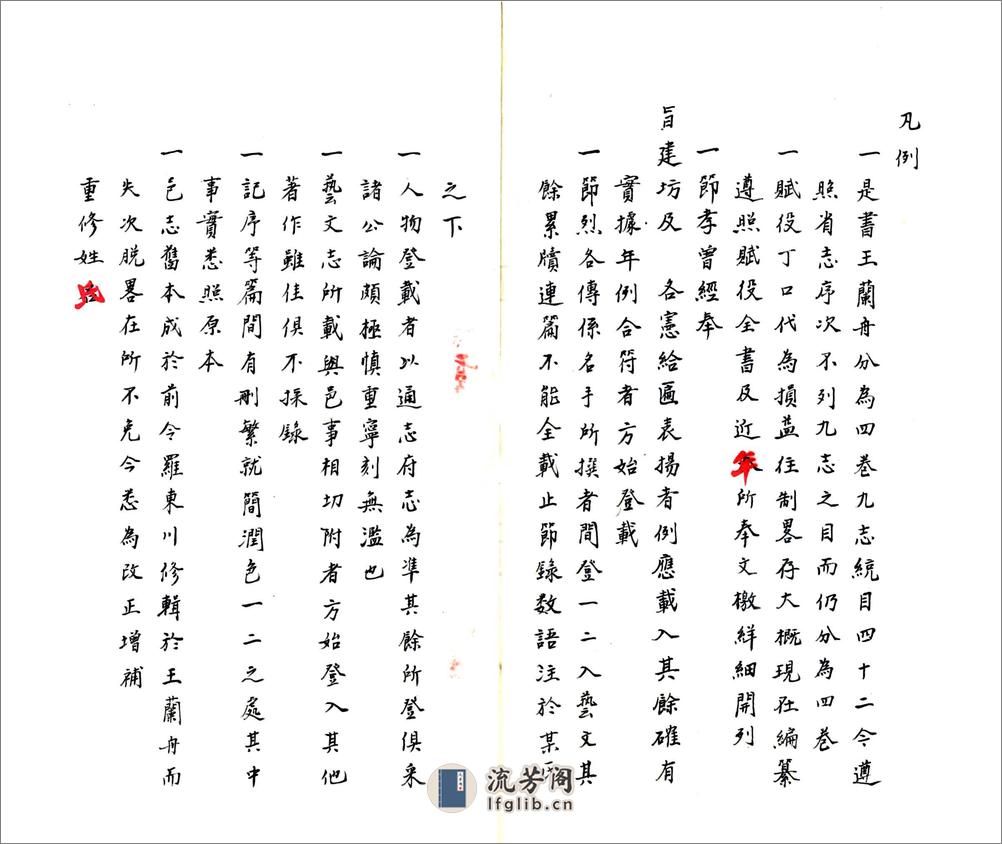 凡例
一是書王蘭舟分為四卷九志統目四十二今遵
照省志序次不列九志之目而仍分為四卷
一賦役丁口代為損益往制畧存大概現在編纂
遵照賦役全書及近年所奉文檄鮮細開列
一節孝曾經奉
旨建坊及 各憲給匾表揚者例應載入其餘確有
實據年例合符者方始登載
一節烈各傳係名手所撰者間登一二入藝文其
餘累牘連篇不能全載止節錄数語注於某氏
之下
一人物登載者以通志府志為準其餘所登俱采
諸公論頗極慎重寧刻無濫也
一藝文志所載與邑事相切附者方始登入其他
著作雖佳俱不採錄
一記序等篇間有刪繁就簡潤色一二之處其中
事實悉照原本
一邑志舊本成於前令羅東川修輯於王蘭舟而
失次脫畧在所不免今悉為改正增補
重修姓氏
流芳阁
lfglib.cn